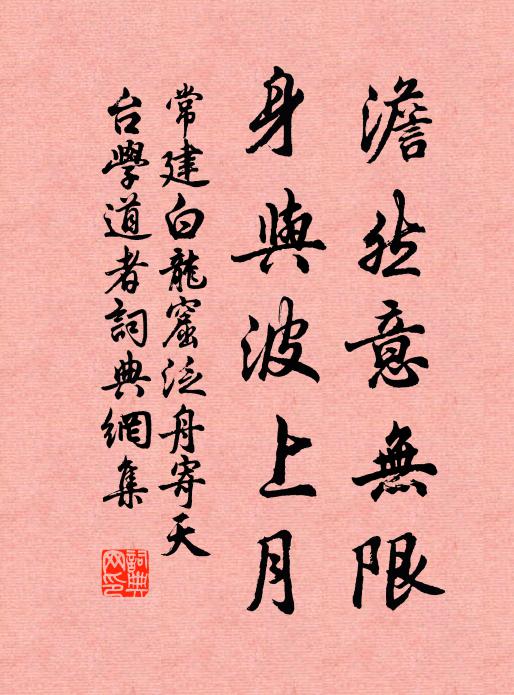 澹然意無限
身與波上月
常建白龍窟泛舟寄天
台學道者詞典網集
詞典網印